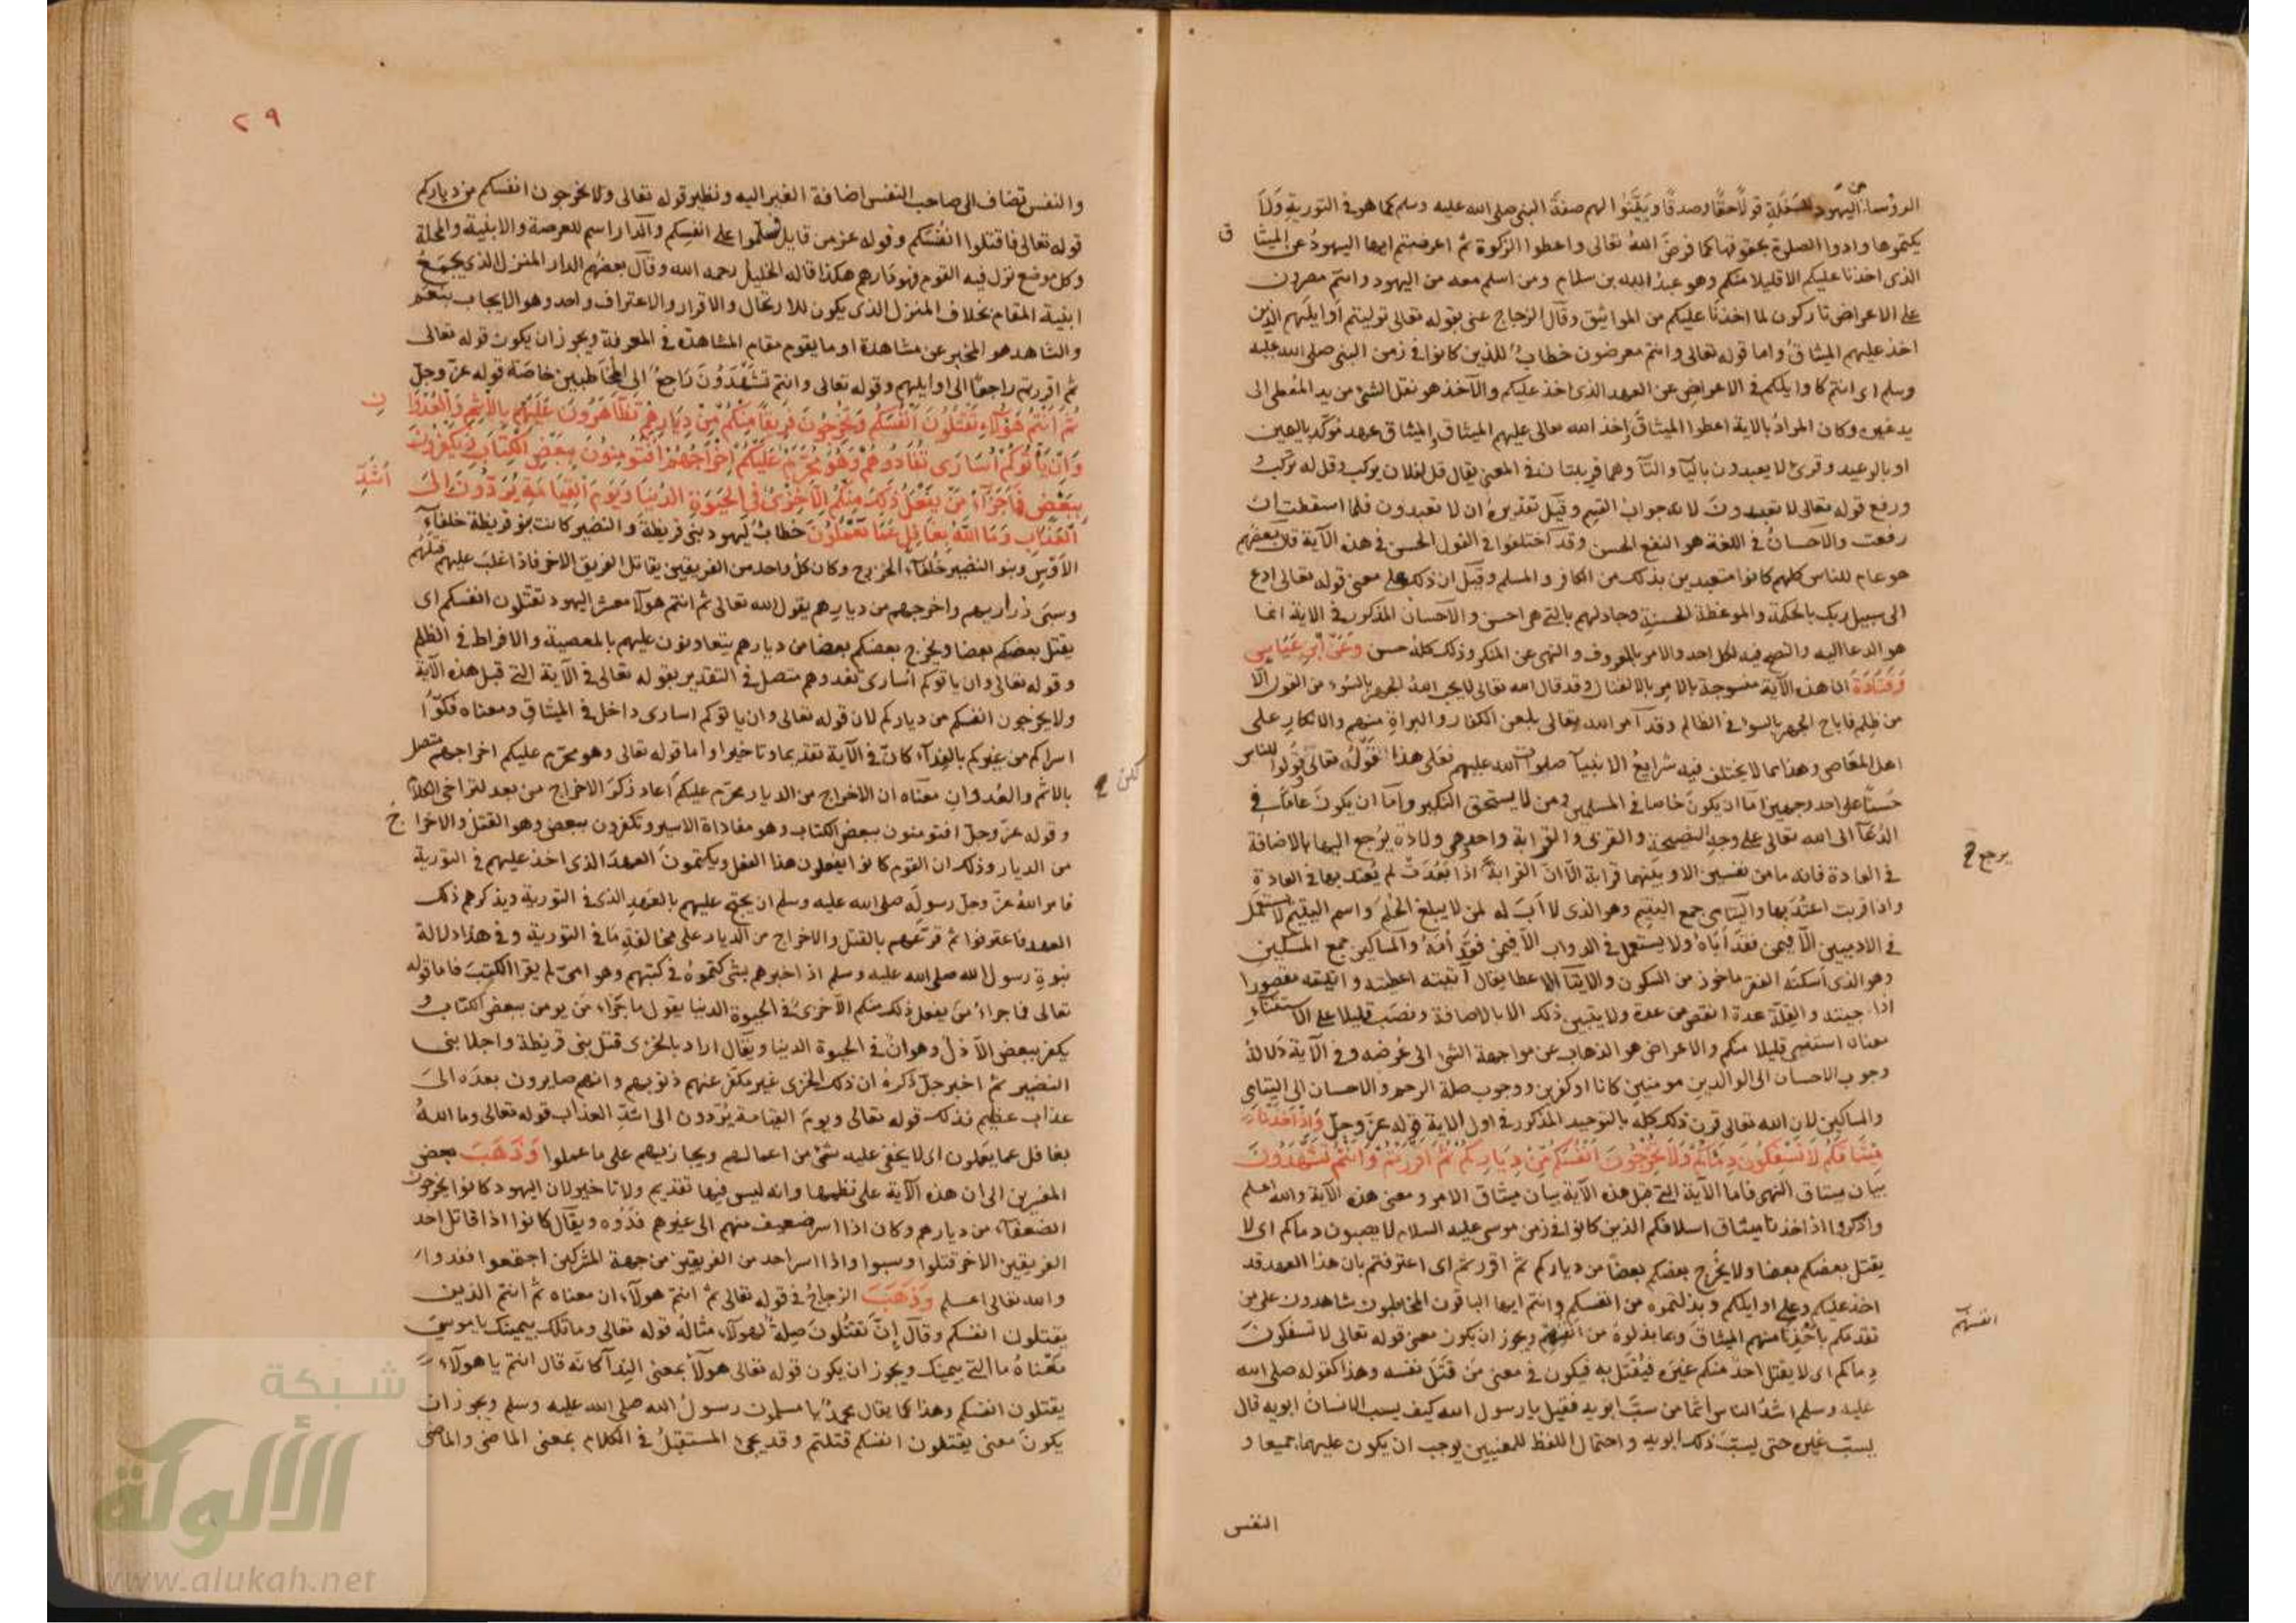 الرؤسا من اليهود للسفلة قولا حقا وصدقا وبينوا لهم صفة النبي صلى الله عليه وسلم كما هو في التورية ولا
يكتموها وادوا الصلوة بحقوقها كما فرض الله تعالى واعطوا الزكوة ثم اعرضتم ايها اليهود عن الميثا ق
الذى اخذنا عليكم الا قليلا منكم وهو عبد الله بن سلام ومن اسلم معه من اليهود وانتم مصرون
على الاعراض تاركون لما اخذنا عليكم من المواثيق وقال الزجاج عنى بقوله تعالى توليتم اوايلهم الذين
اخذ عليهم الميثاق واما قوله تعالى وانتم معرضون خطاب للذين كانوا في زمن النبي صلى الله عليه
وسلم اى انتم كاوايلكم في الاعراض عن العهد الذى اخذ عليكم والاخذ هو نقل الشئ من يد المعطى الى
يد غيره وكان المراد بالاية اعطوا الميثاق اخذ الله تعالى عليهم الميثاق والميثاق عهد مؤكد باليمين
او بالوعيد وقرئ لا يعبدون باليآ والتآ وهما قريبتان في المعنى يقال قل لفلان يركب وقل له تركب
ورفع قوله تعالى لا تعبدون لانه جواب القسم وقيل تقديره ان لا تعبدون فلما اسقطت ان
رفعت والاحسان في اللغة هو النفع الحسن وقد اختلفوا في القول الحسن في هذه الآية قال بعضهم
هو عام للناس كلهم كانوا متعبدين بذلك من الكافر والمسلم وقيل ان ذلك على معنى قوله تعالى ادع
الى سبيل ربك بالحكمة والموعظة الحسنة وجادلهم بالتى هى احسن والاحسان المذكور في الاية انما
هو الدعا اليه والنصح فيه لكل احد والامر بالمعروف والنهى عن المنكر وذلك كله حسن وعن ابن عباس
وقتادة ان هذه الآية منسوخة بالامر بالقتال وقد قال الله تعالى لا يحب الله الجهر بالسوء من القول الا
من ظلم فاباح الجهر بالسوا في الظالم وقد امر الله تعالى بلعن الكفار والبراة منهم والانكار على
اهل المعاصى وهذا مما لا يختلف فيه شرايع الانبيآ صلوات الله عليهم فعلى هذا القول قوله تعالى وقولوا للناس
حسنا على احد وجهين اما ان يكون خاصا في المسلمين ومن لا يستحق النكير واما ان يكون عاما في
الدعآ الى الله تعالى على وجه النصيحة والقربى والقرابة واحد وهى ولادة يرجع اليها بالاضافة
يرجع
في العادة فانه ما من نفسين الا وبينهما قرابة الا ان القرابة اذا بعدت لم يعتد بها في العادة
واذا قربت اعتد بها واليتامى جمع اليتيم وهو الذى لا اب له لمن لا يبلغ الحلم واسم اليتيم لا يستعمل
في الادميين الا فيمن فقد اباه ولا يستعمل في الدواب الا فيمن فقد امه والمساكين جمع المسكين
وهو الذى اسكنه الفقر ماخوذ من السكون والايتآ الاعطا يقال آتيته اعطيته واتيته مقصورا
اذا جيته والقلة عدة انقص من عدة ولا يتبين ذلك الا بالاضافة ونصب قليلا على الاستثناء
معناه استثنى قليلا منكم والاعراض هو الذهاب عن مواجهة الشئ الى عرضه وفي الآية دلالة
وجوب الاحسان الى الوالدين مومنين كانا او كافرين ووجوب صلة الرحم والاحسان الى اليتامى
والمساكين لان الله تعالى قرن ذلك كله بالتوحيد المذكور في اول الاية قوله عز وجل واذ اخذنا
ميثاقكم لا تسفكون دماءكم ولا تخرجون انفسكم من دياركم ثم اقررتم وانتم تشهدون
بيان ميثاق النهى فاما الآية التى قبل هذه الآية بيان ميثاق الامر ومعنى هذه الآية والله اعلم
واذكروا اذ اخذنا ميثاق اسلافكم الذين كانوا في زمن موسى عليه السلام لا يصبون دماكم اى لا
يقتل بعضكم بعضا ولا يخرج بعضكم بعضا من دياركم ثم اقررتم اى اعترفتم بان هذا العهد قد
اخذ عليكم وعلى اوايلكم وبذلتموه من انفسكم وانتم ايها الباقون المخاطبون شاهدون على من
تقدمكم باخذنا منهم الميثاق وبما بذلوه من انفسهم ويجوز ان يكون معنى قوله تعالى لا تسفكون
انفسهم
دماكم اى لا يقتل احد منكم غيره فيقتل به فيكون في معنى من قتل نفسه وهذا كقوله صلى الله
عليه وسلم اشد الناس اثما من سب ابويه فقيل يا رسول الله كيف يسب الانسان ابويه قال
يسب غيره حتى يسب ذلك ابويه واحتمال اللفظ للمعنيين يوجب ان يكون عليهما جميعا و
النفس
٢٩
والنفس تضاف الى صاحب النفس اضافة الغير اليه ونظير قوله تعالى ولا تخرجون انفسكم من دياركم
قوله تعالى فاقتلوا انفسكم وقوله عز من قايل فسلموا على انفسكم والدار اسم للعرصة والابنية والمحلة
وكل موضع نزل فيه القوم فهو دارهم هكذا قاله الخليل رحمه الله وقال بعضهم الدار المنزل الذى يجمع
ابنية المقام بخلاف المنزل الذى يكون للارتحال والاقرار والاعتراف واحد وهو الايجاب بنعم
والشاهد هو المخبر عن مشاهدة او ما يقوم مقام المشاهدة في المعرفة ويجوز ان يكون قوله تعالى
ثم اقررتم راجعا الى اوايلهم وقوله تعالى وانتم تشهدون راجع الى المخاطبين خاصة قوله عز وجل
ثم انتم هؤلاء تقتلون انفسكم وتخرجون فريقا منكم من ديارهم تظاهرون عليهم بالاثم والعدوا ن
وان ياتوكم اسارى تفادوهم وهو محرم عليكم اخراجهم افتؤمنون ببعض الكتاب وتكفرون
ببعض فما جزآء من يفعل ذلك منكم الا خزى في الحيوة الدنيا ويوم القيامة يردون الى اشد
العذاب وما الله بغافل عما تعملون خطاب ليهود بنى قريظة والنضير كانت بنو قريظة خلفآء
الاوس وبنو النضير حلفآء الخزرج وكان كل واحد من الفريقين يقاتل الفريق الاخر فاذا غلب عليهم قتلهم
وسبى ذراريهم واخرجهم من ديارهم يقول الله تعالى ثم انتم هولآ معشر اليهود تقتلون انفسكم اى
يقتل بعضكم بعضا ويخرج بعضكم بعضا من ديارهم يتعاونون عليهم بالمعصية والافراط في الظلم
وقوله تعالى وان ياتوكم اسارى تفدوهم متصل في التقدير بقوله تعالى في الآية التى قبل هذه الآية
ولا يخرجون انفسكم من دياركم لان قوله تعالى وان ياتوكم اسارى داخل في الميثاق ومعناه فكوا
اسراكم من غيركم بالفدآء كان في الآية تقديما وتاخيرا واما قوله تعالى وهو محرم عليكم اخراجهم متصل
بالاثم والعدوان معناه ان الاخراج من الديار محرم عليكم اعاد ذكر الاخراج من بعد لتراخى الكلام
وقوله عز وجل افتومنون ببعض الكتاب وهو مفاداة الاسير وتكفرون ببعض وهو القتل والاخرا ج
من الديار وذلك ان القوم كانوا يفعلون هذا الفعل ويكتمون العهد الذى اخذ عليهم في التورية
فامر الله عز وجل رسوله صلى الله عليه وسلم ان يحتج عليهم بالعهد الذى في التورية ويذكرهم ذلك
العهد فاعترفوا ثم قرعهم بالقتل والاخراج من الديار على مخالفة ما في التورية وفي هذا دلالة
نبوة رسول الله صلى الله عليه وسلم اذ اخبرهم بشى كتموه في كتبهم وهو امى لم يقرا الكتب فاما قوله
تعالى فما جزاء من يفعل ذلك منكم الا خزى في الحيوة الدنيا يقول ما جزاء من يومن ببعض الكتاب و
يكفر ببعض الا ذل وهوان في الحيوة الدنيا ويقال اراد بالخزى قتل بنى قريظة واجلا بنى
النضير ثم اخبر جل ذكره ان ذلك الخزى غير مكفر عنهم ذنوبهم وانهم صايرون بعده الى
عذاب عظيم فذلك قوله تعالى ويوم القيامة يردون الى اشد العذاب قوله تعالى وما الله
بغافل عما يعملون اى لا يخفى عليه شئ من اعمالهم ويجازيهم على ما عملوا وذهب بعض
المفسرين الى ان هذه الآية على نظمها وانه ليس فيها تقديم ولا تاخير لان اليهود كانوا يخرجون
الضعفآء من ديارهم وكان اذا اسر ضعيف منهم الى غيرهم فدوه ويقال كانوا اذا قاتل احد
الفريقين الاخر قتلوا وسبوا واذا اسر احد من الفريقين من جهة المشركين اجتمعوا ففدوا
والله تعالى اعلم وذهب الزجاج في قوله تعالى ثم انتم هولآء ان معناه ثم انتم الذين
يقتلون انفسكم وقال ان تقتلون صلة لهولآء مثاله قوله تعالى وما تلك بيمينك يا موسى
معناه ما التى بيمينك ويجوز ان يكون قوله تعالى هولآ بمعنى الندآ كانه قال انتم يا هولآء
يقتلون انفسكم وهذا كما يقال محمد يا مسلمون رسول الله صلى الله عليه وسلم ويجوز ان
يكون معنى يقتلون انفسكم قتلتم وقد يجئ المستقبل في الكلام بمعنى الماضى والماضى
شبكة
الألوكة
www.alukah.net